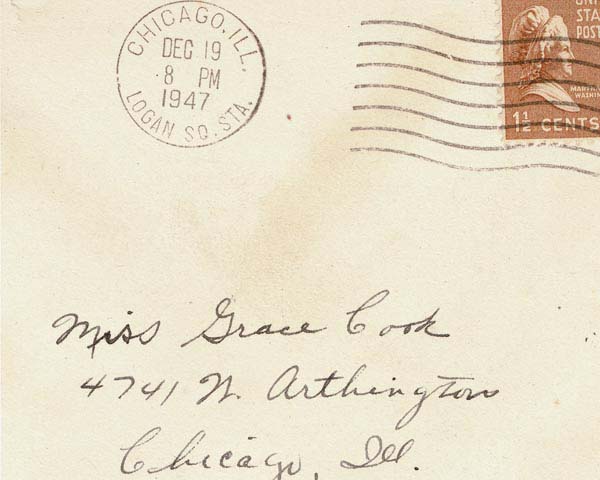 CHICAGO, ILL.
DEC 19
8 PM
1947
LOGAN SQ. STA.
UNITED
STA
POST
MARTHA
WASHIN
1½ CENTS
Miss Grace Cook
4741 W. Arthington
Chicago, Ill.